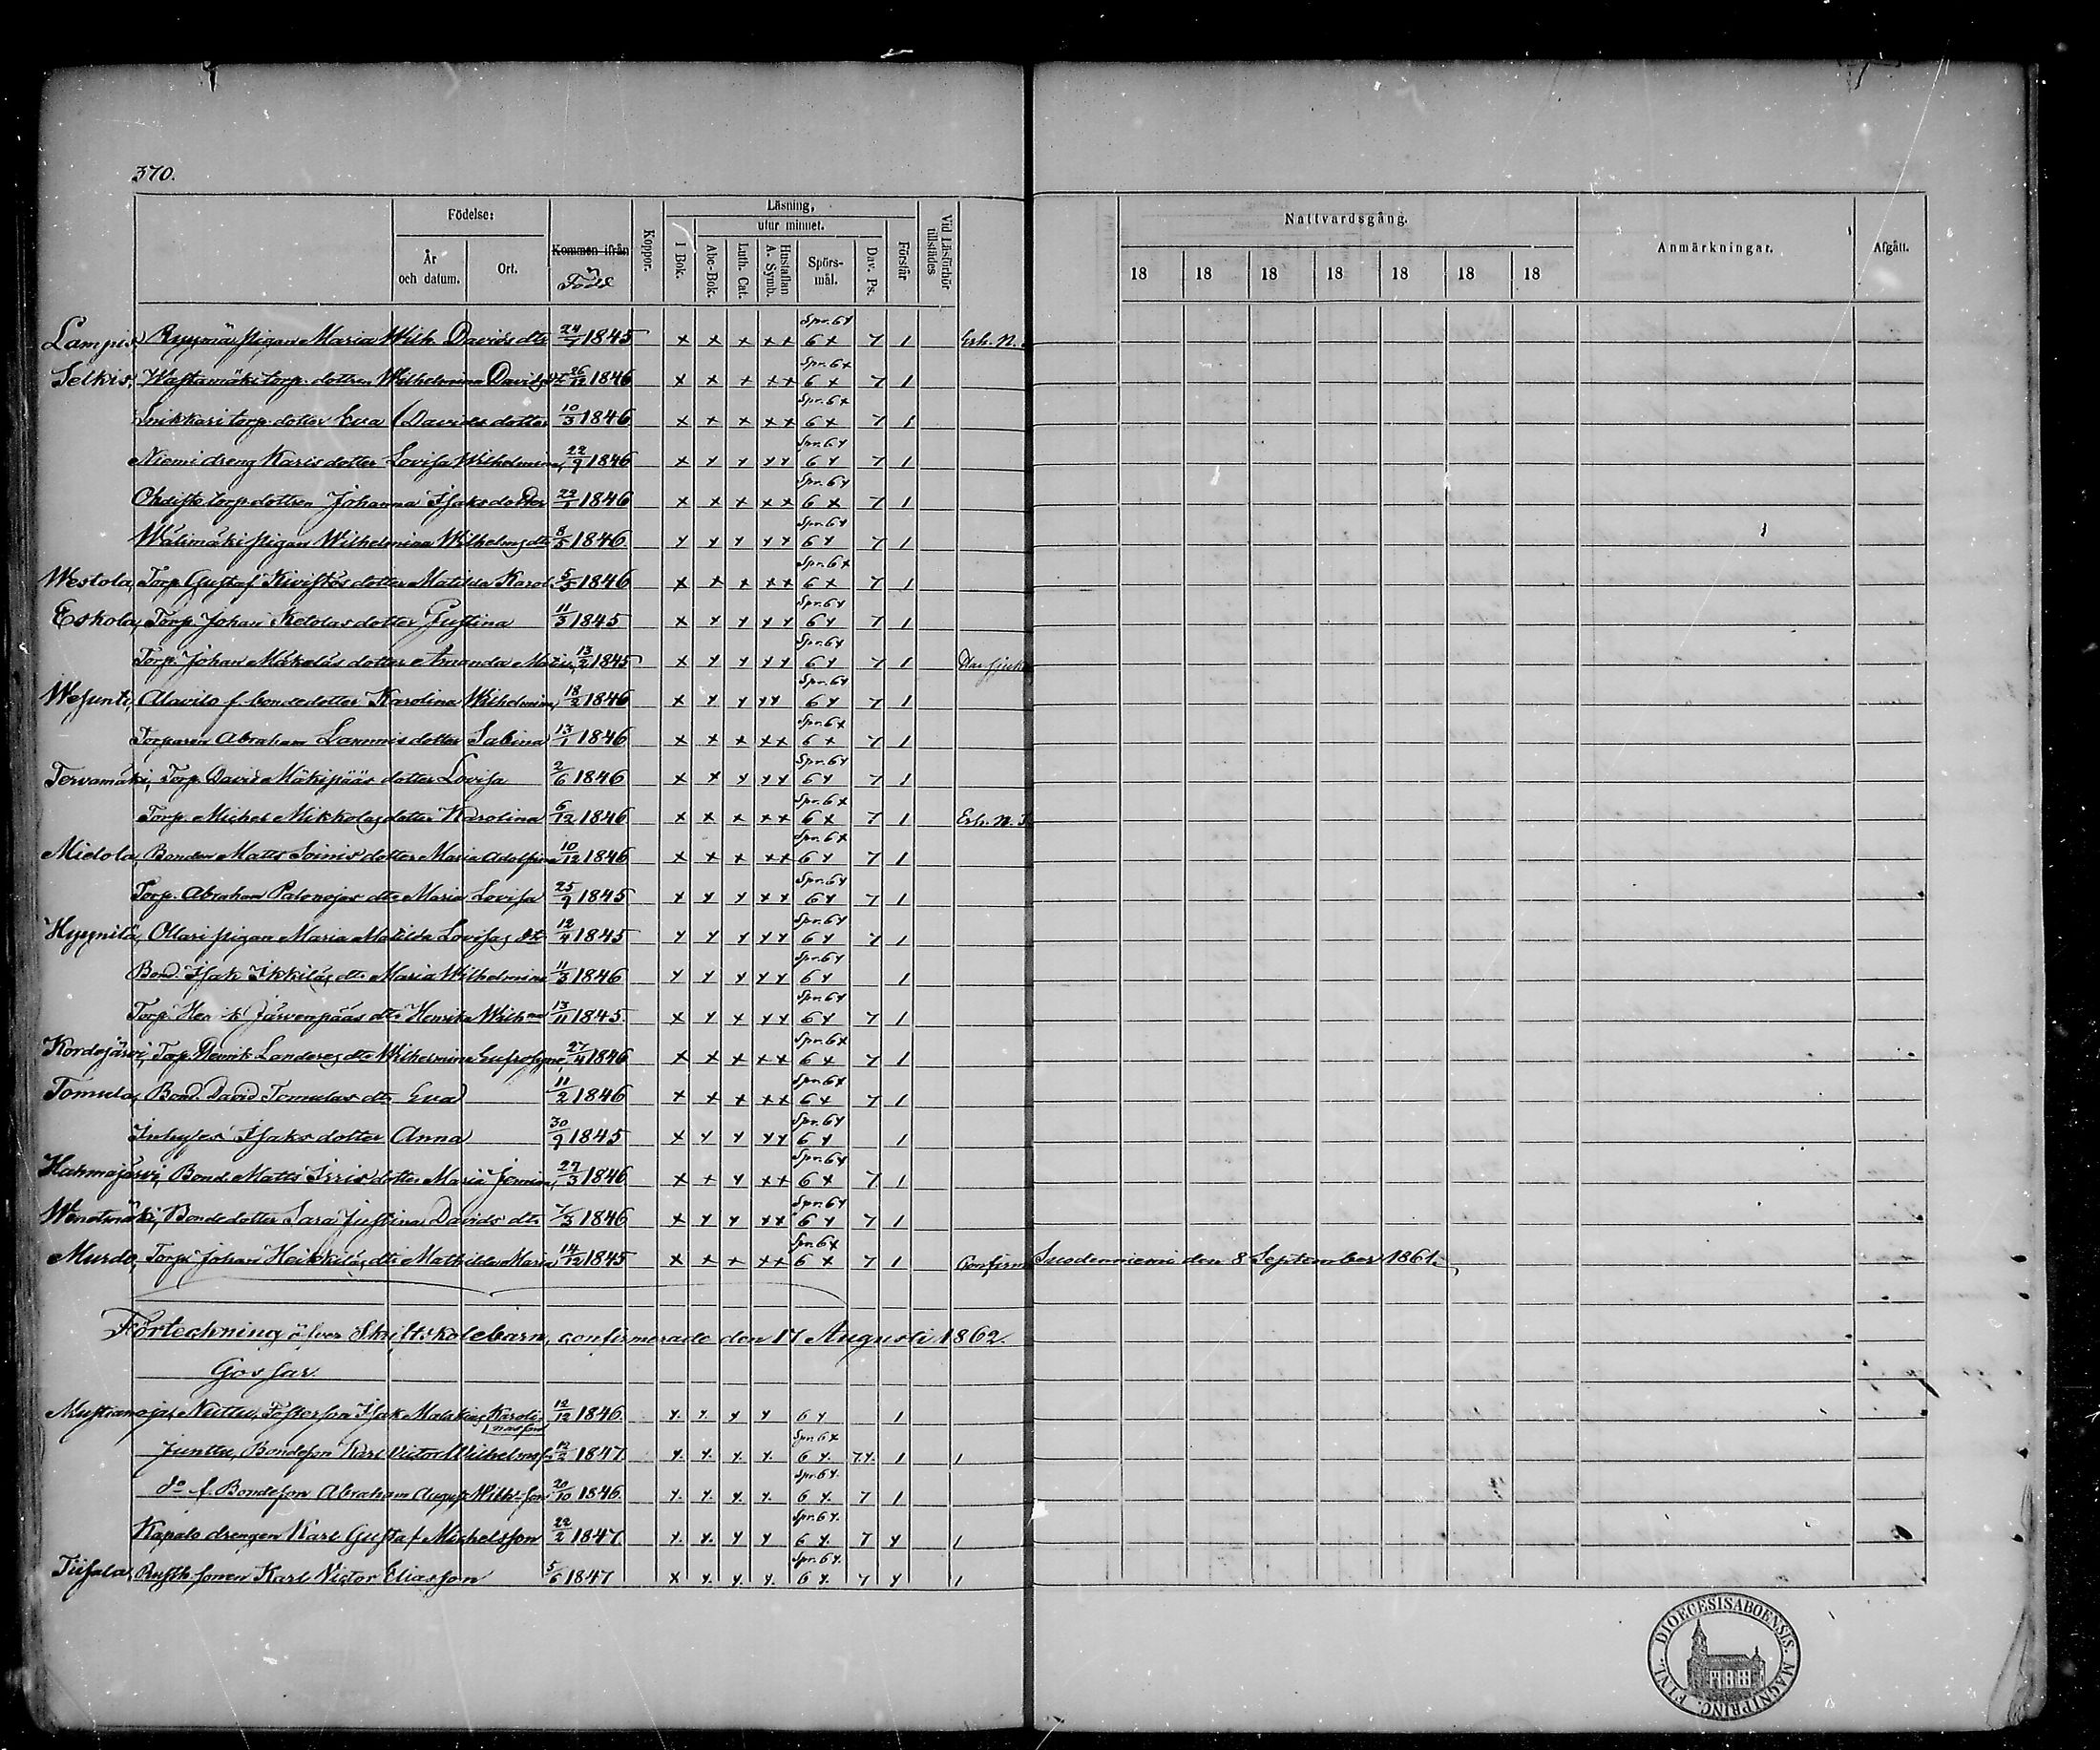 370.
Födelse: Läsning, Nattvardsgång. Anmärkningar. Afgått.
utur minnet.
År och datum. Ort. Kommen ifrån Född Koppor. I Bok. Abc-Bok. Luth. Cat. Hustaflan A. Symb. Spörs-mål. Dav. Ps. Förstår Vid Läsförhör tillstädes
18 18 18 18 18 18 18
Maria Wilh. Davids dtr 24/7 1845 x x x x x Spr. 6 y 6 x 7 1 Erh. N.
Selkis, torp. dottren Wilhelmina Davids 26/12 1846 x x x x x Spr. 6 x 6 x 7 1
torp. dotter Eva Davids dotter 10/3 1846 x x x x x Spr. 6 x 6 x 7 1
Niemi dreng Karis dotter Lovisa Wilhelmina, 22/9 1846 x y y y y Spr. 6 y 6 y 7 1
torp dottren Johanna Isaks dotter 22/1 1846 x x x x x Spr. 6 y 6 x 7 1
Välimäki pigan Wilhelmina Wilhelms dtr 8/5 1846 y y y y y Spr. 6 y 6 y 7 1
Westola, Torp. Gustaf Kivistös dotter Matilda Karol. 5/5 1846 x x x x x Spr. 6 x 6 x 7 1
Eskola, Torp. Johan Ketolas dotter Justina 11/3 1845 x y y y y Spr. 6 y 6 y 7 1
Torp. Johan Mäkeläs dotter Amanda Maria, 13/2 1845 x y y y y Spr. 6 y 6 y 7 1
Wesunti, Alavilo f. bondedotter Karolina Wilhelmina, 18/2 1846 x y y y y Spr. 6 y 6 y 7 1
Torparen Abraham Lammis dotter Sabina 13/1 1846 x x x x x Spr. 6 x 6 x 7 1
Tervamäki, Torp. David Mäkipääs dotter Lovisa 2/6 1846 x x y y y Spr. 6 y 6 y 7 1
Torp. Michel Mikkolas dotter Karolina 6/12 1846 x x x x x Spr. 6 x 6 x 7 1 Erh. N.
Mietola, Bonden Matts Soinis dotter Maria Adolfina 10/12 1846 x x x x x Spr. 6 x 6 y 7 1
Torp. Abraham Palonojas dtr Maria Lovisa 25/9 1845 x y y x y Spr. 6 y 6 y 7 1
Hyynilä, Ollari pigan Maria Matilda Lovisas dtr 12/4 1845 y y y y y Spr. 6 y 6 y 7 1
Bond. Isak Ikkiläs dtr Maria Wilhelmina 11/3 1846 y y y y y Spr. 6 y 6 y 1
Torp. Henrik Järvenpääs dtr Henrika Wilhna 13/11 1845. x y x y y Spr. 6 y 6 y 7 1
Kordejärvi, Torp. Henrik Landeres dtr Wilhelmina Eufrosyne, 27/4 1846 x x x x x Spr. 6 x 6 x 7 1
Tomula, Bond. David Tomulas dtr Eva 11/2 1846 x x x x x Spr. 6 x 6 x 7 1
Inhyses Isaks dotter Anna 30/9 1845 x y y y y Spr. 6 y 6 y 1
Hahmajärvi, Bond. Matts Sirris dotter Maria 27/3 1846 x x y x x Spr. 6 x 6 x 7 1
Bondedotter Sara Justina Davids dtr 7/3 1846 x y y x x Spr. 6 y 6 y 7 1
Murdo, Torp. Johan Heikkiläs dtr Mathilda Maria 14/12 1845 x x x x x Spr. 6 x 6 x 7 1 Confirm Suodenniemi den 8 September 1861.
Förteckning öfver Skriftskolebarn, confirmerade den 17 Augusti 1862.
Gossar.
Mustianoja, Nuttu, Fosterson Isak Malakias Karoli-nas son 12/12 1846. y. y. y y 6 y 1
Junttu, Bondeson Karl Victor Wilhelmss. 12/2 1847 y. y. y. y. Spr. 6 x 6 y. 7.y. 1 1
do f. Bondeson Abraham August Wilh.son 20/10 1846. y. y. y. y. Spr. 6 y. 6 y. 7 1
Kapalo drengen Karl Gustaf Michelsson 22/2 1847. y. y. y y Spr. 6 y. 6 y. 7 y 1
Tiisala, Rusth. sonen Karl Victor Eliasson 5/6 1847 x y. y. y. Spr. 6 y. 6 y. 7 y 1
DIOECESIS ABOENSIS. MAGNI PRINC. FINL.